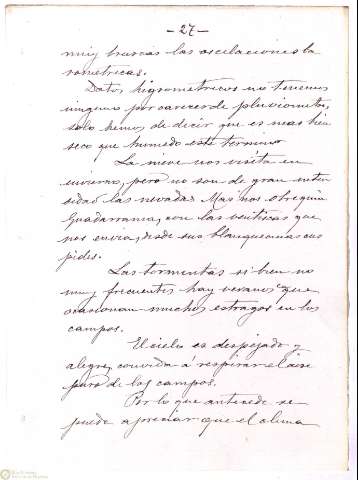 - 27 -
muy bruscas las oscilaciones ba
rometricas.
Datos higrometricos no tenemos
ninguno por carecer de pluviometro,
solo hemos de decir que es mas bien
seco que humedo este termino
La nieve nos visita en
invierno, pero no son de gran inten
sidad las nevadas. Mas nos obsequia
Guadarrama, con las ventiscas que
nos envia, desde sus blanquecinas cus
pides.
Las tormentas si bien no
muy frecuentes hay veranos que
ocasionan muchos estragos en los
campos.
El cielo es despejado y
alegre, convida á respirar el aire
puro de los campos.
Por lo que antecede se
puede apreciar que el clima